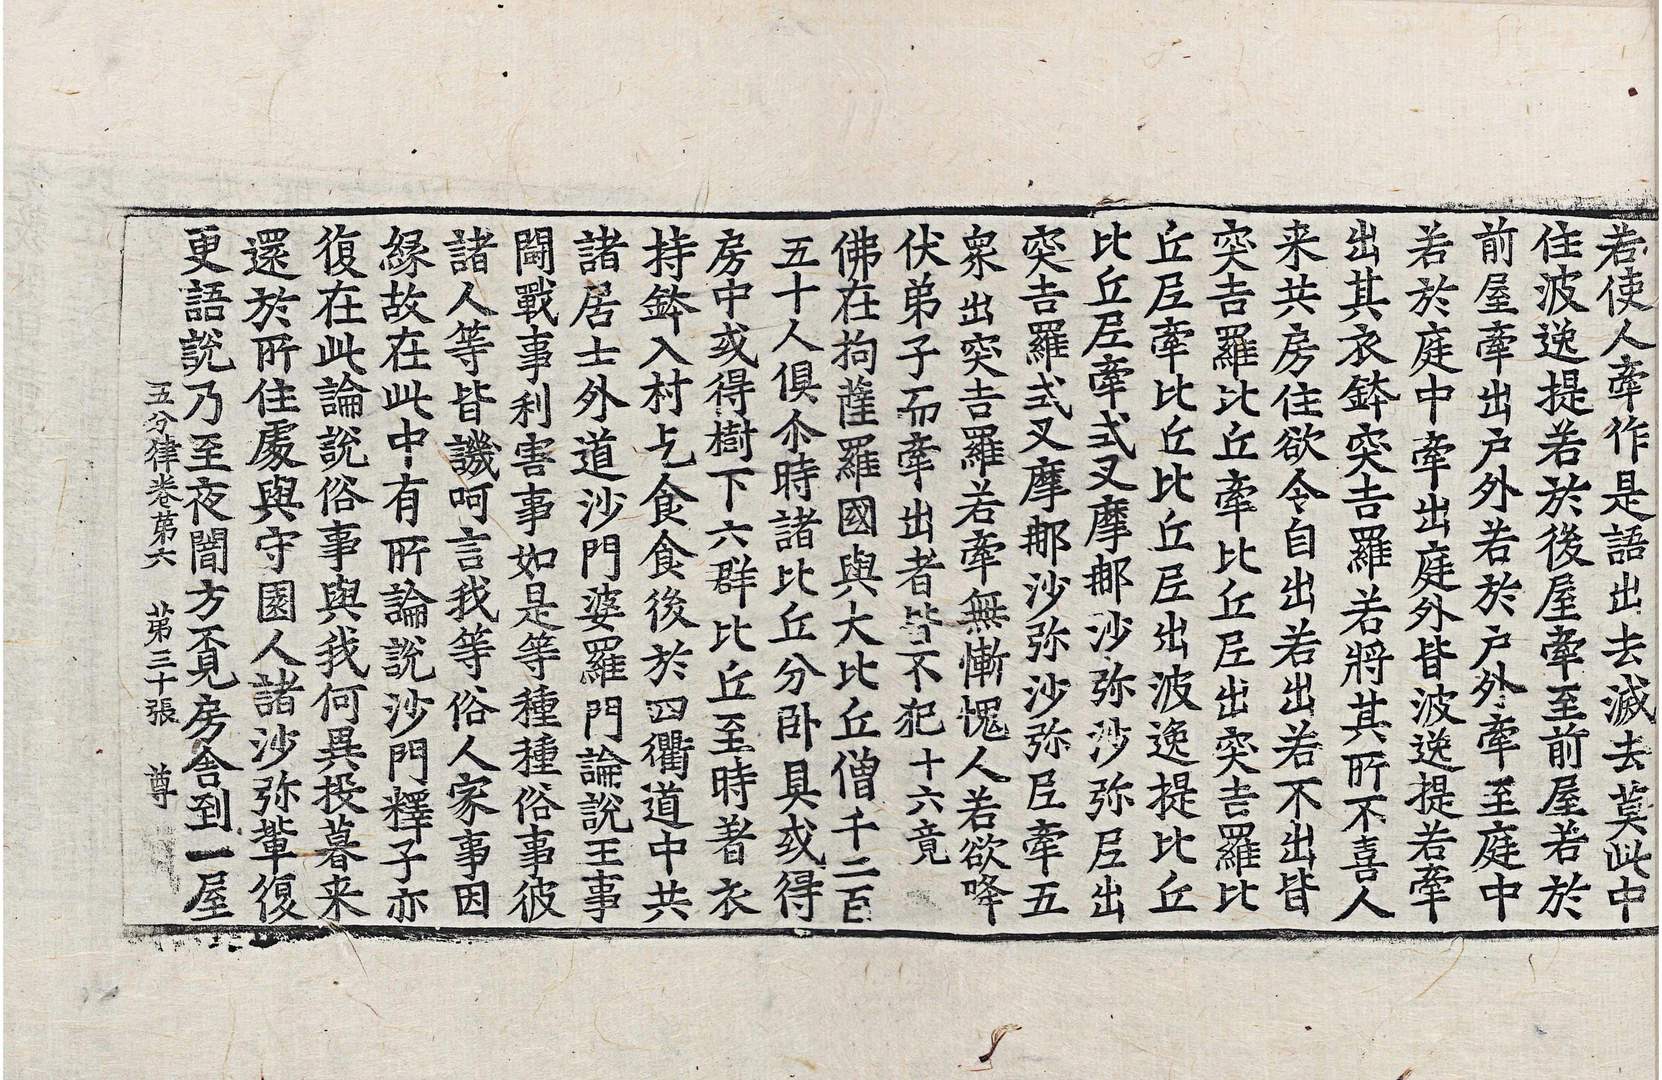 若使人牽作是語出去滅去莫此中
住波逸提若於後屋牽至前屋若於
前屋牽出户外若於户外牽至庭中
若於庭中牽出庭外皆波逸提若牽
出其衣鉢突吉羅若將其所不喜人
来共房住欲令自出若出若不出皆
突吉羅比丘牽比丘尼出突吉羅比
丘尼牽比丘比丘尼出波逸提比丘
比丘尼牽式叉摩那沙弥沙弥尼出
突吉羅式叉摩那沙弥沙弥尼牽五
衆出突吉羅若牽無慚愧人若欲降
伏弟子而牽出者皆不犯十六竟
佛在拘薩羅國與大比丘僧千二百
五十人俱尒時諸比丘分卧具或得
房中或得樹下六群比丘至時著衣
持鉢入村乞食食後於四衢道中共
諸居士外道沙門婆羅門論說王事
鬪戰事利害事如是等種種俗事彼
諸人等皆譏呵言我等俗人家事因
緣故在此中有所論說沙門釋子亦
復在此論說俗事與我何異投暮来
還於所住處與守園人諸沙弥輩復
更語說乃至夜闇方覓房舍到一屋
五分律卷第六 第三十張 尊